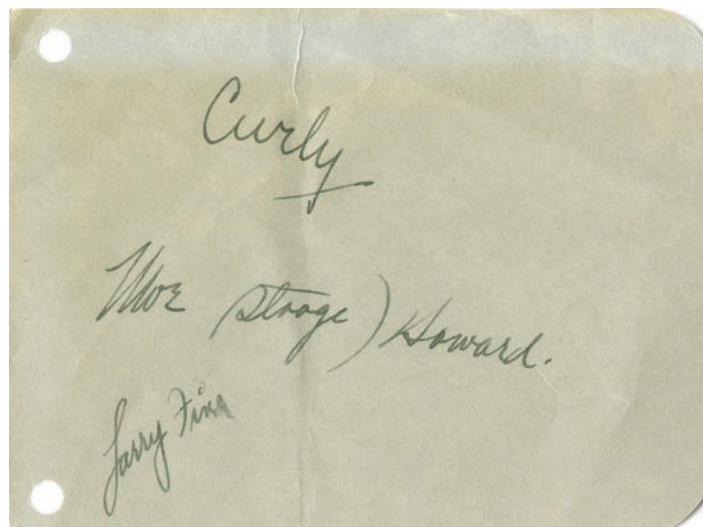 Curly
Moe (Stooge) Howard.
Larry Fine